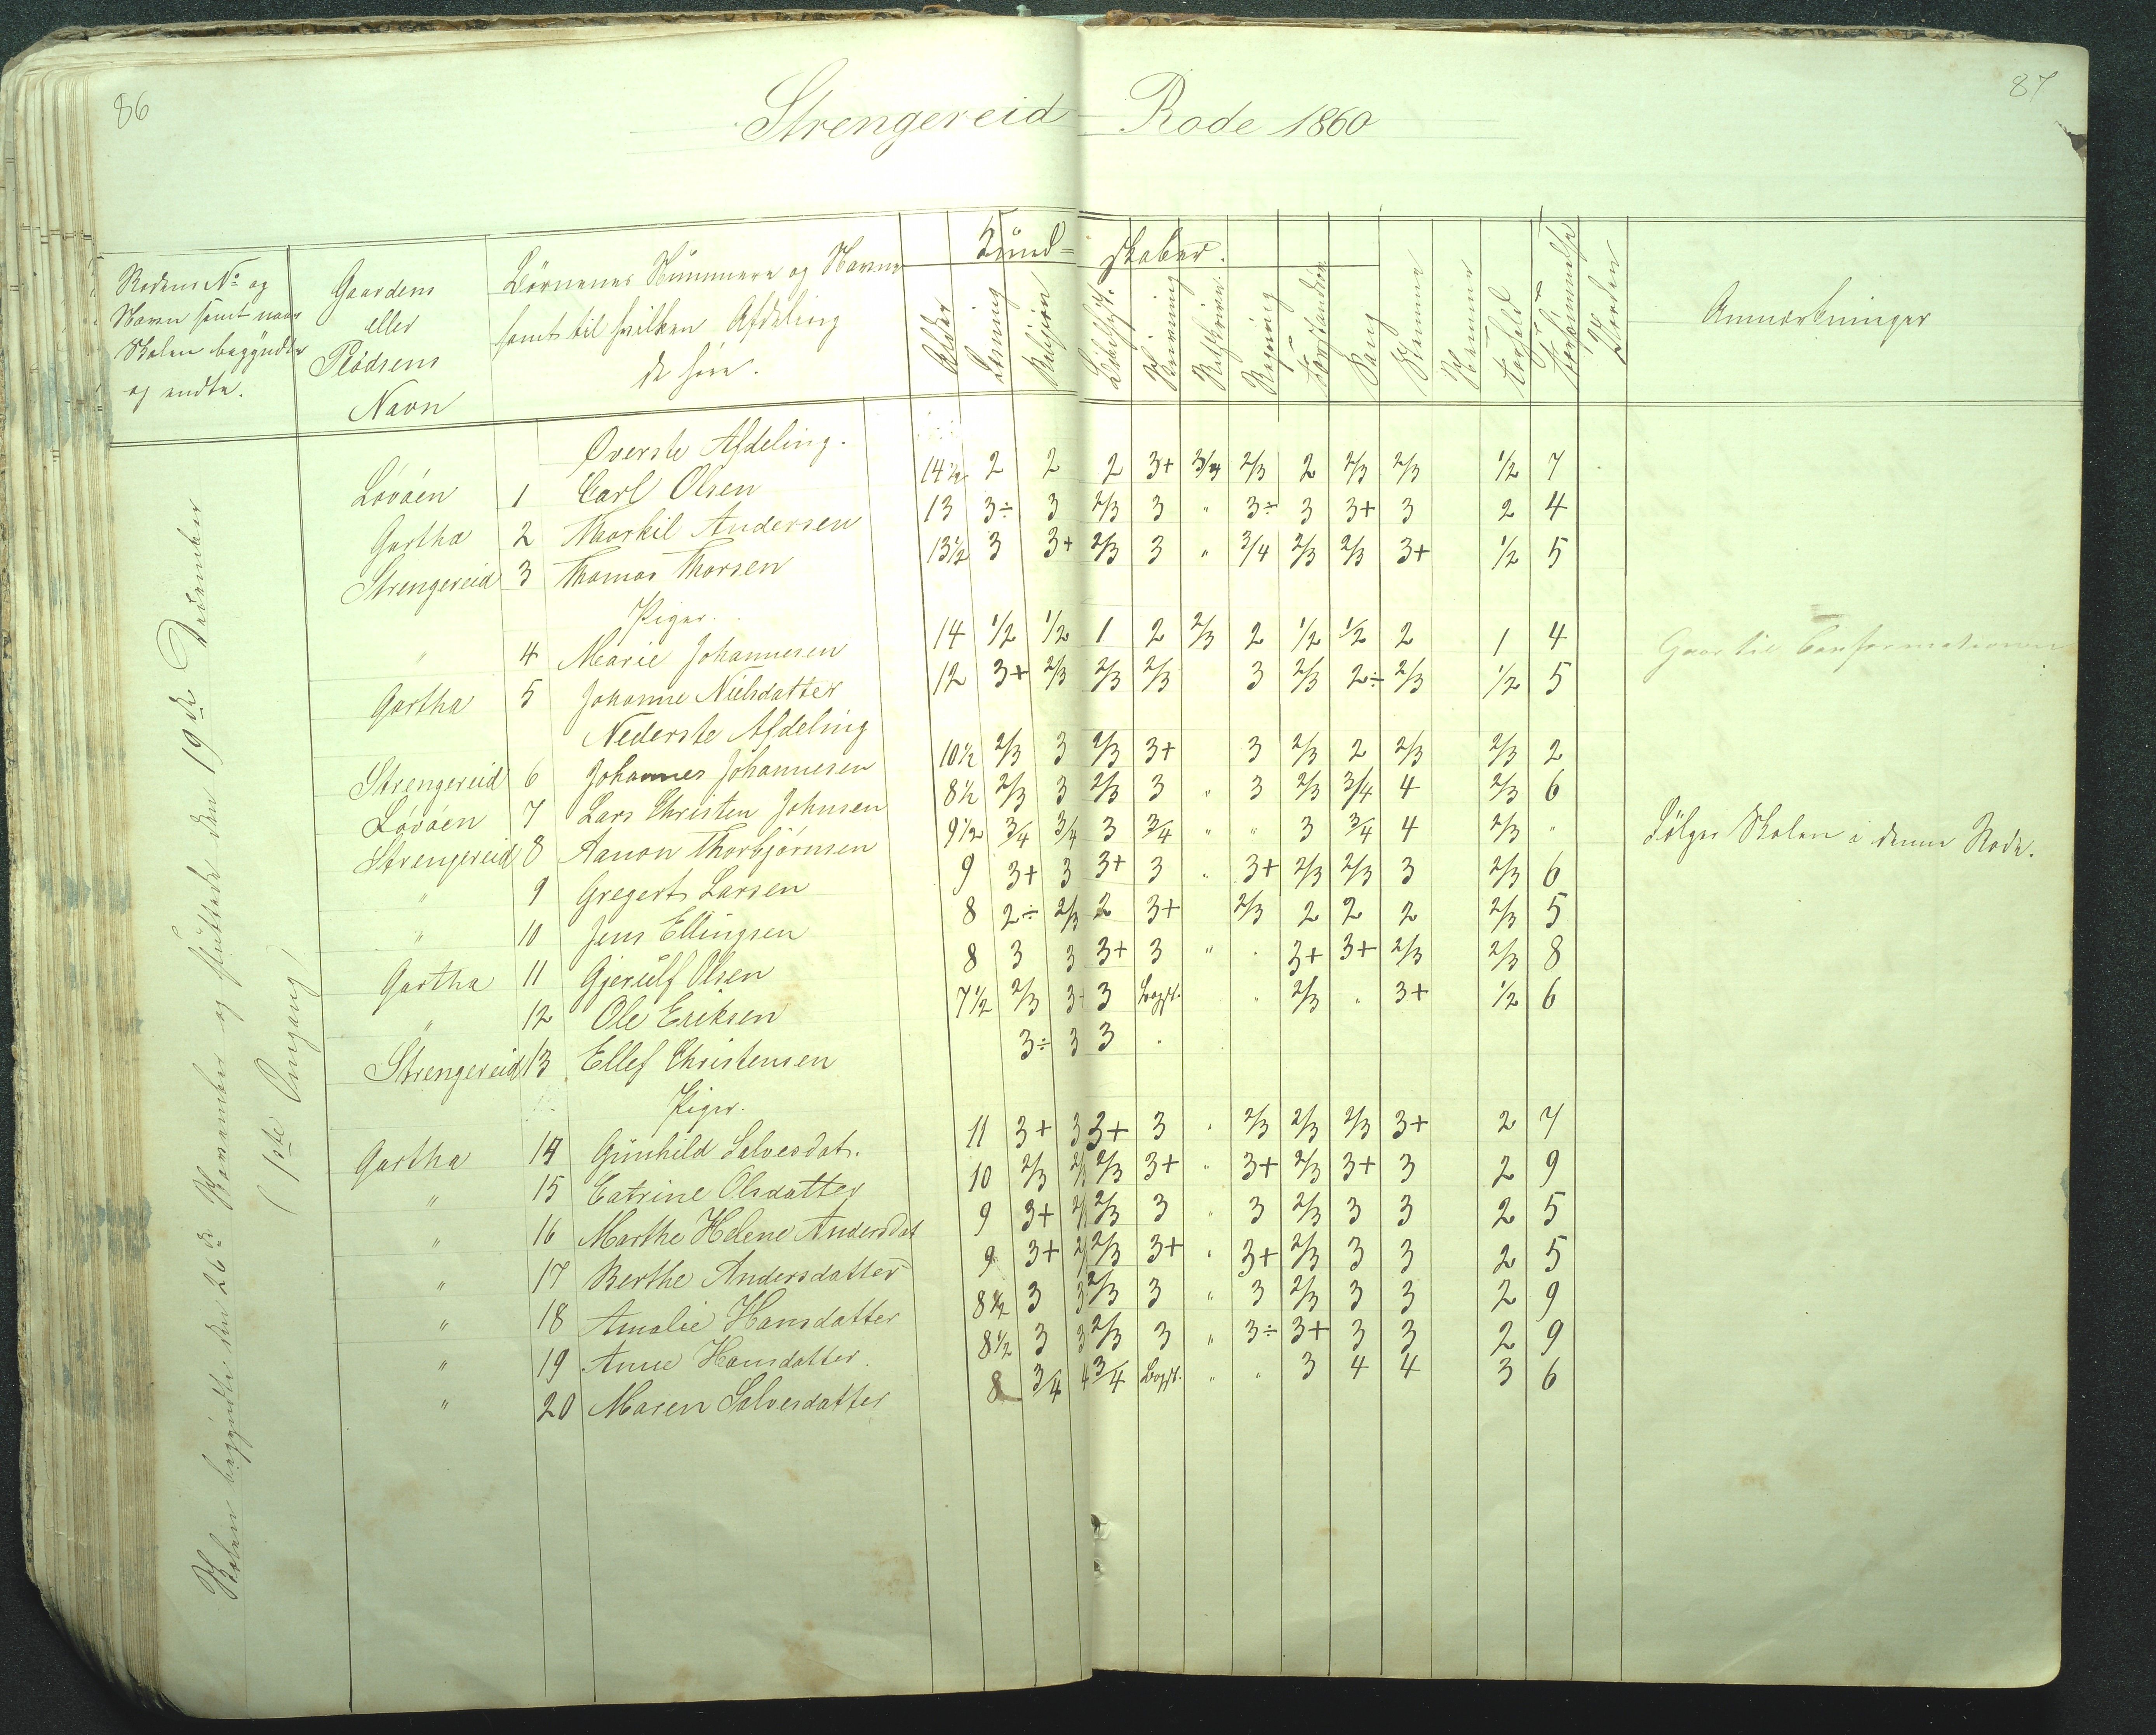 86
87
Strengereid Rode 1860
Rodens No og Navn samt naar Skolen begyndte og endte.
Gaardens eller Pladsens Navn
Börnenes Nummere og Navne samt til hvilken Afdeling de höre.
Kund= skaber.
Alder
Læsning
Religion
Bibelhist.
Skrivning
Retskrivn.
Regning
Forstandsöv.
Sang
Evne
Forhold
Forsömmelse
Anmærkninger
Skolen begyndte den 26de November og sluttede den 19de December
(1ste Omgang)
Överste Afdeling.
Lövöen 1 Carl Olsen 14½ 2 2 2 3+ 3/4 2/3 2 2/3 2/3 1/2 7
Gartha 2 Thorkil Andersen 13 3÷ 3 2/3 3 " 3÷ 3 3+ 3 2 4
Strengereid 3 Thomas Thorsen 13½ 3 3+ 2/3 3 " 3/4 2/3 2/3 3+ 1/2 5
Piger.
" 4 Marie Johannesen 14 1/2 1/2 1 2 2/3 2 1/2 1/2 2 1 4 Gaar til Confirmationen
Gartha 5 Johanne Nielsdatter 12 3+ 2/3 2/3 2/3 3 2/3 2÷ 2/3 1/2 5
Nederste Afdeling
Strengereid 6 Johannes Johannesen 10½ 2/3 3 2/3 3+ 3 2/3 2 2/3 2/3 2
Lövöen 7 Lars Christen Johnsen 8½ 2/3 3 2/3 3 " 3 2/3 3/4 4 2/3 6
Strengereid 8 Aanon Thorbjörnsen 9½ 3/4 3/4 3 3/4 " " 3 3/4 4 2/3 " Fölger Skolen i denne Rode.
" 9 Gregert Larsen 9 3+ 3 3+ 3 " 3+ 2/3 2/3 3 2/3 6
" 10 Jens Ellingsen 8 2÷ 2/3 2 3+ 2/3 2 2 2 2/3 5
Gartha 11 Gjerulf Olsen 8 3 3 3+ 3 " " 3+ 3+ 2/3 2/3 8
" 12 Ole Eriksen 7½ 2/3 3+ 3 Begyt. " 2/3 " 3+ 1/2 6
Strengereid 13 Ellef Christensen 3÷ 3 3 "
Piger.
Gartha 14 Gunhild Salvesdat. 11 3+ 3 3+ 3 " 2/3 2/3 2/3 3+ 2 7
" 15 Catrine Olsdatter 10 2/3 2/3 2/3 3+ " 3+ 2/3 3+ 3 2 9
" 16 Marthe Helene Andersdat 9 3+ 2/3 2/3 3 " 3 2/3 3 3 2 5
" 17 Berthe Andersdatter 9 3+ 2/3 2/3 3+ " 3+ 2/3 3 3 2 5
" 18 Amalie Hansdatter 8½ 3 3 2/3 3 " 3 2/3 3 3 2 9
" 19 Anne Hansdatter. 8½ 3 3 2/3 3 " 3÷ 3+ 3 3 2 9
" 20 Maren Salvesdatter 8 3/4 4 3/4 Begyt. " " 3 4 4 3 6